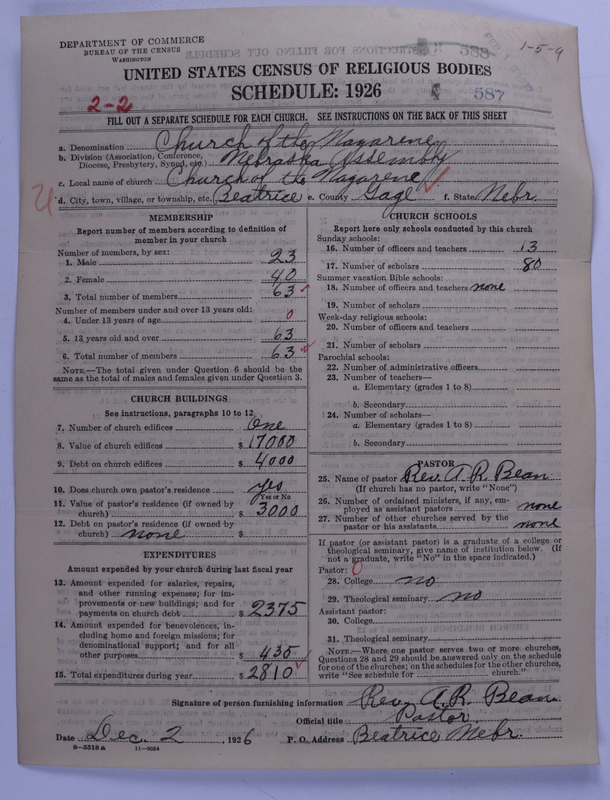 DEPARTMENT OF COMMERCE
BUREAU OF THE CENSUS
WASHINGTON
388
1-5-9
UNITED STATES CENSUS OF RELIGIOUS BODIES
SCHEDULE: 1926
587
2-2
FILL OUT A SEPARATE SCHEDULE FOR EACH CHURCH. SEE INSTRUCTIONS ON THE BACK OF THIS SHEET
a. Denomination Church of the Nazarene
b. Division (Association, Conference, Diocese, Presbytery, Synod, etc.) Nebraska Assembly
c. Local name of church Church of the Nazarene
d. City, town, village, or township, etc. Beatrice e. County Gage f. State Nebr.
MEMBERSHIP
Report number of members according to definition of
member in your church
Number of members, by sex:
1. Male 23
2. Female 40
3. Total number of members 63
Number of members under and over 13 years old:
4. Under 13 years of age 0
5. 13 years old and over 63
6. Total number of members 63
NOTE.—The total given under Question 6 should be
same as the total of males and females given under Question 3.
CHURCH BUILDINGS
See instructions, paragraphs 10 to 12
7. Number of church edifices One
8. Value of church edifices $ 17000
9. Debt on church edifices $ 4000
10. Does church own pastor's residence yes
Yes or No
11. Value of pastor's residence (if owned by
church) $ 3000
12. Debt on pastor's residence (if owned by
church) none $
EXPENDITURES
Amount expended by your church during last fiscal year
13. Amount expended for salaries, repairs,
and other running expenses; for im-
provements or new buildings; and for
payments on church debt $ 2375
14. Amount expended for benevolences, in-
cluding home and foreign missions; for
denominational support; and for all
other purposes $ 435
15. Total expenditures during year $ 2810
CHURCH SCHOOLS
Report here only schools conducted by this church
Sunday schools:
16. Number of officers and teachers 13
17. Number of scholars 80
Summer vacation Bible schools:
18. Number of officers and teachers none
19. Number of scholars
Week-day religious schools:
20. Number of officers and teachers
21. Number of scholars
Parochial schools:
22. Number of administrative officers
23. Number of teachers—
a. Elementary (grades 1 to 8)
b. Secondary
24. Number of scholars—
a. Elementary (grades 1 to 8)
b. Secondary
PASTOR
25. Name of pastor Rev. A. R. Bean
(If church has no pastor, write "None")
26. Number of ordained ministers, if any, em-
ployed as assistant pastors none
27. Number of other churches served by the
pastor or his assistants none
If pastor (or assistant pastor) is a graduate of a college or
theological seminary, give name of institution below. (If
not a graduate, write "No" in the space indicated.)
Pastor: 0
28. College no
29. Theological seminary no
Assistant pastor:
30. College
31. Theological seminary
NOTE.—Where one pastor serves two or more churches,
Questions 28 and 29 should be answered only on the schedule
for one of the churches; on the schedules for the other churches,
write "See schedule for church."
Signature of person furnishing information Rev. A. R. Bean
Official title Pastor
Date Dec. 2, 1926 P. O. Address Beatrice Nebr.
8-5518a 11-9024